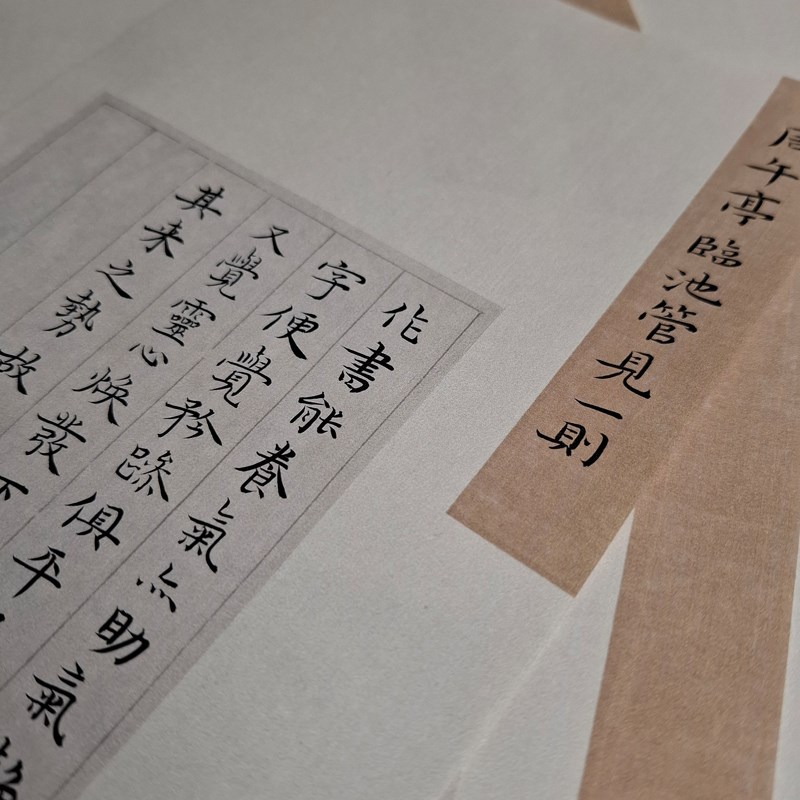 周午亭臨池管見一則
作書能養氣亦助氣
字便覺矜躁俱平
又覺靈心煥發下
其来之勢故